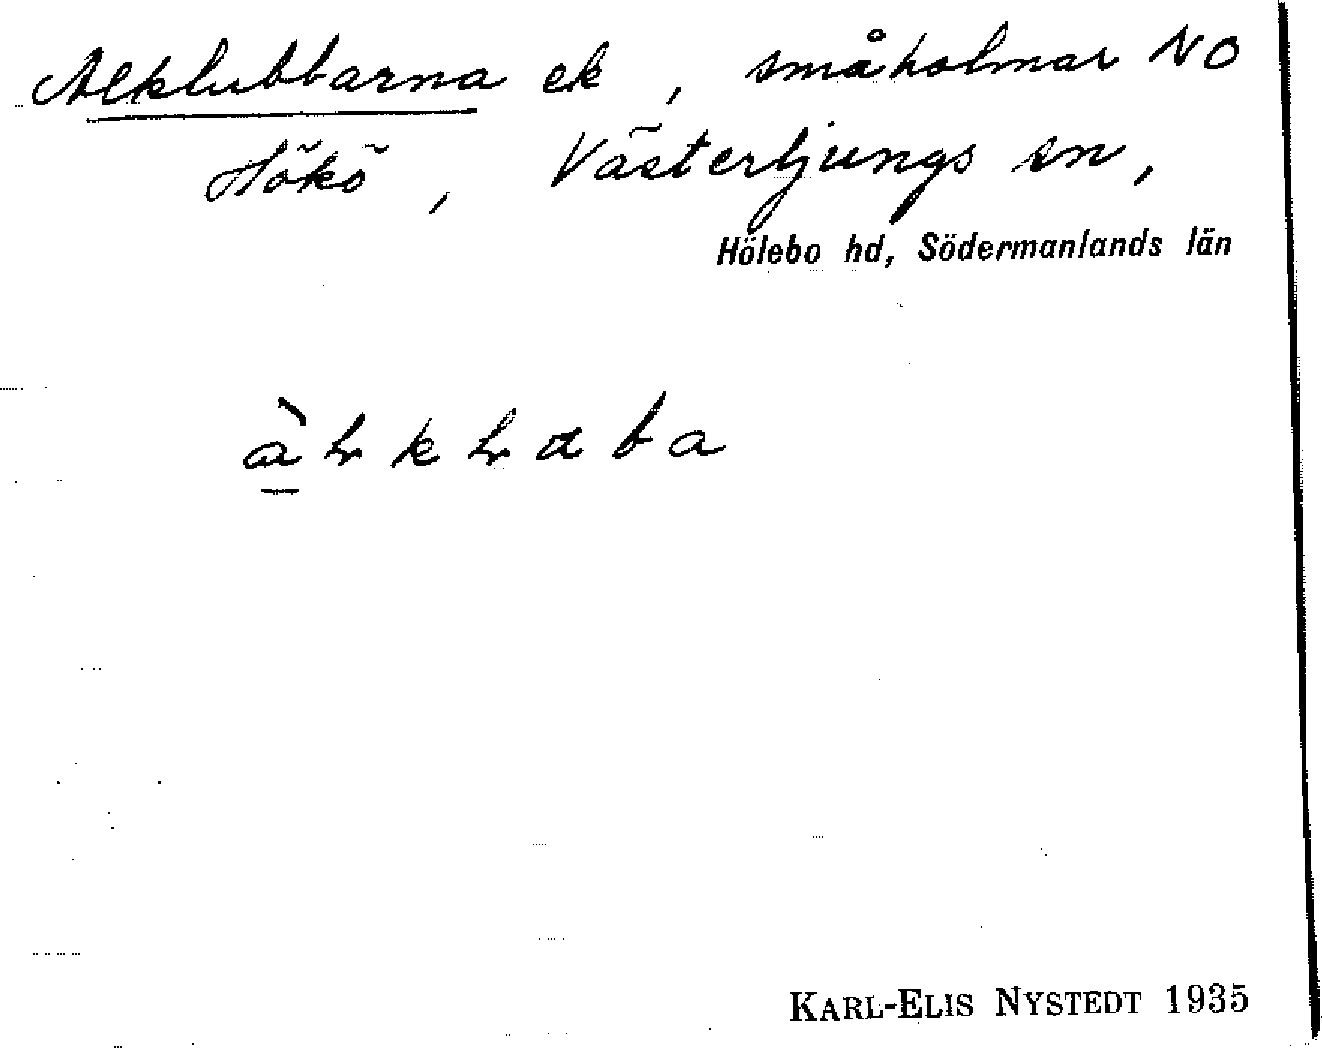 Alklubbarna ek, småholmar NO
Hökö, Västerljungs sn,
Hölebo hd, Södermanlands län
KARL-ELIS NYSTEDT 1935